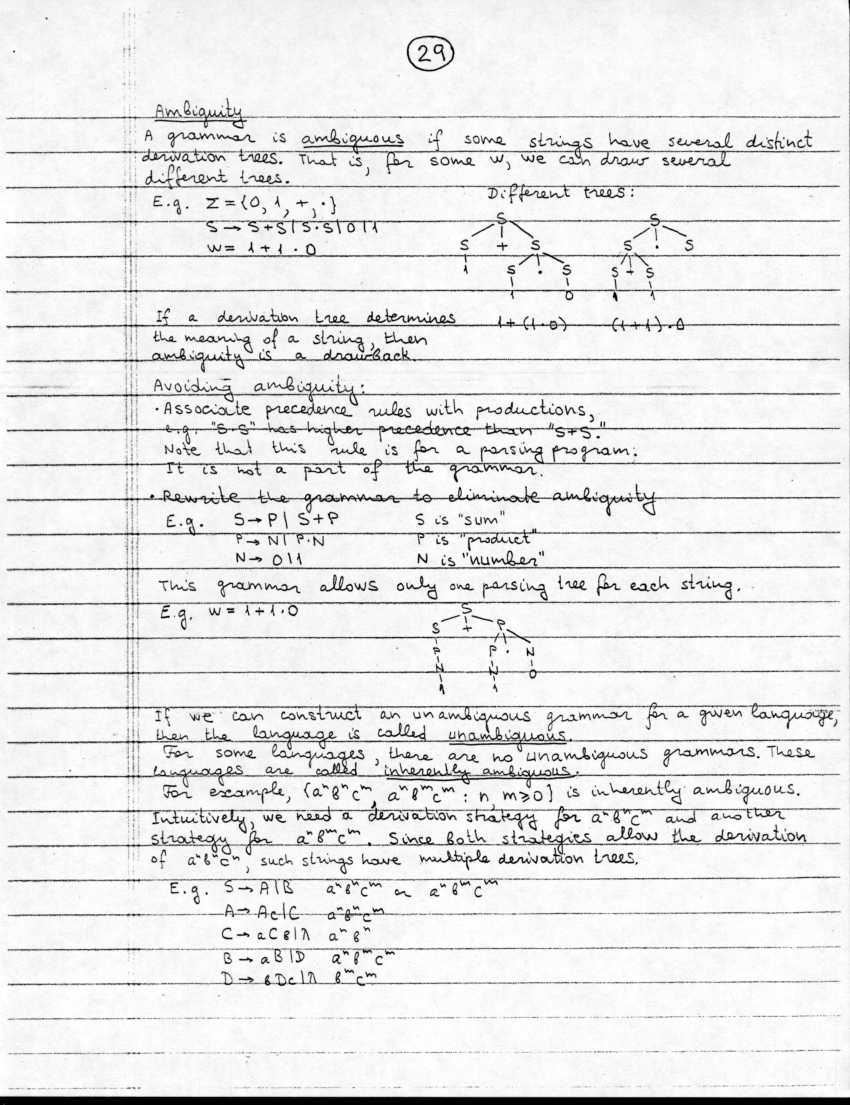 29
Ambiguity
A grammar is ambiguous if some strings have several distinct
derivation trees. That is, for some w, we can draw several
different trees.
E.g. Σ = {0, 1, +, ·}
Different trees:
S → S+S | S·S | 0 | 1
w = 1+1·0
S
S + S
1 S · S
1 0
S
S · S
S + S
1 1
If a derivation tree determines
1+(1·0) (1+1)·0
the meaning of a string, then
ambiguity is a drawback.
Avoiding ambiguity:
· Associate precedence rules with productions,
e.g. "S·S" has higher precedence than "S+S."
Note that this rule is for a parsing program.
It is not a part of the grammar.
· Rewrite the grammar to eliminate ambiguity
E.g. S → P | S+P S is "sum"
P → N | P·N P is "product"
N → 0 | 1 N is "number"
This grammar allows only one parsing tree for each string.
E.g. w = 1+1·0
S
S + P
P P · N
N N 0
1 1
If we can construct an unambiguous grammar for a given language,
then the language is called unambiguous.
For some languages, there are no unambiguous grammars. These
languages are called inherently ambiguous.
For example, {aⁿbⁿcᵐ, aⁿbᵐcᵐ : n, m ≥ 0} is inherently ambiguous.
Intuitively, we need a derivation strategy for aⁿbⁿcᵐ and another
strategy for aⁿbᵐcᵐ. Since both strategies allow the derivation
of aⁿbⁿcⁿ, such strings have multiple derivation trees.
E.g. S → A | B aⁿbⁿcᵐ or aⁿbᵐcᵐ
A → Ac | C aⁿbⁿcᵐ
C → aCb | λ aⁿbⁿ
B → aB | D aⁿbᵐcᵐ
D → bDc | λ bᵐcᵐ